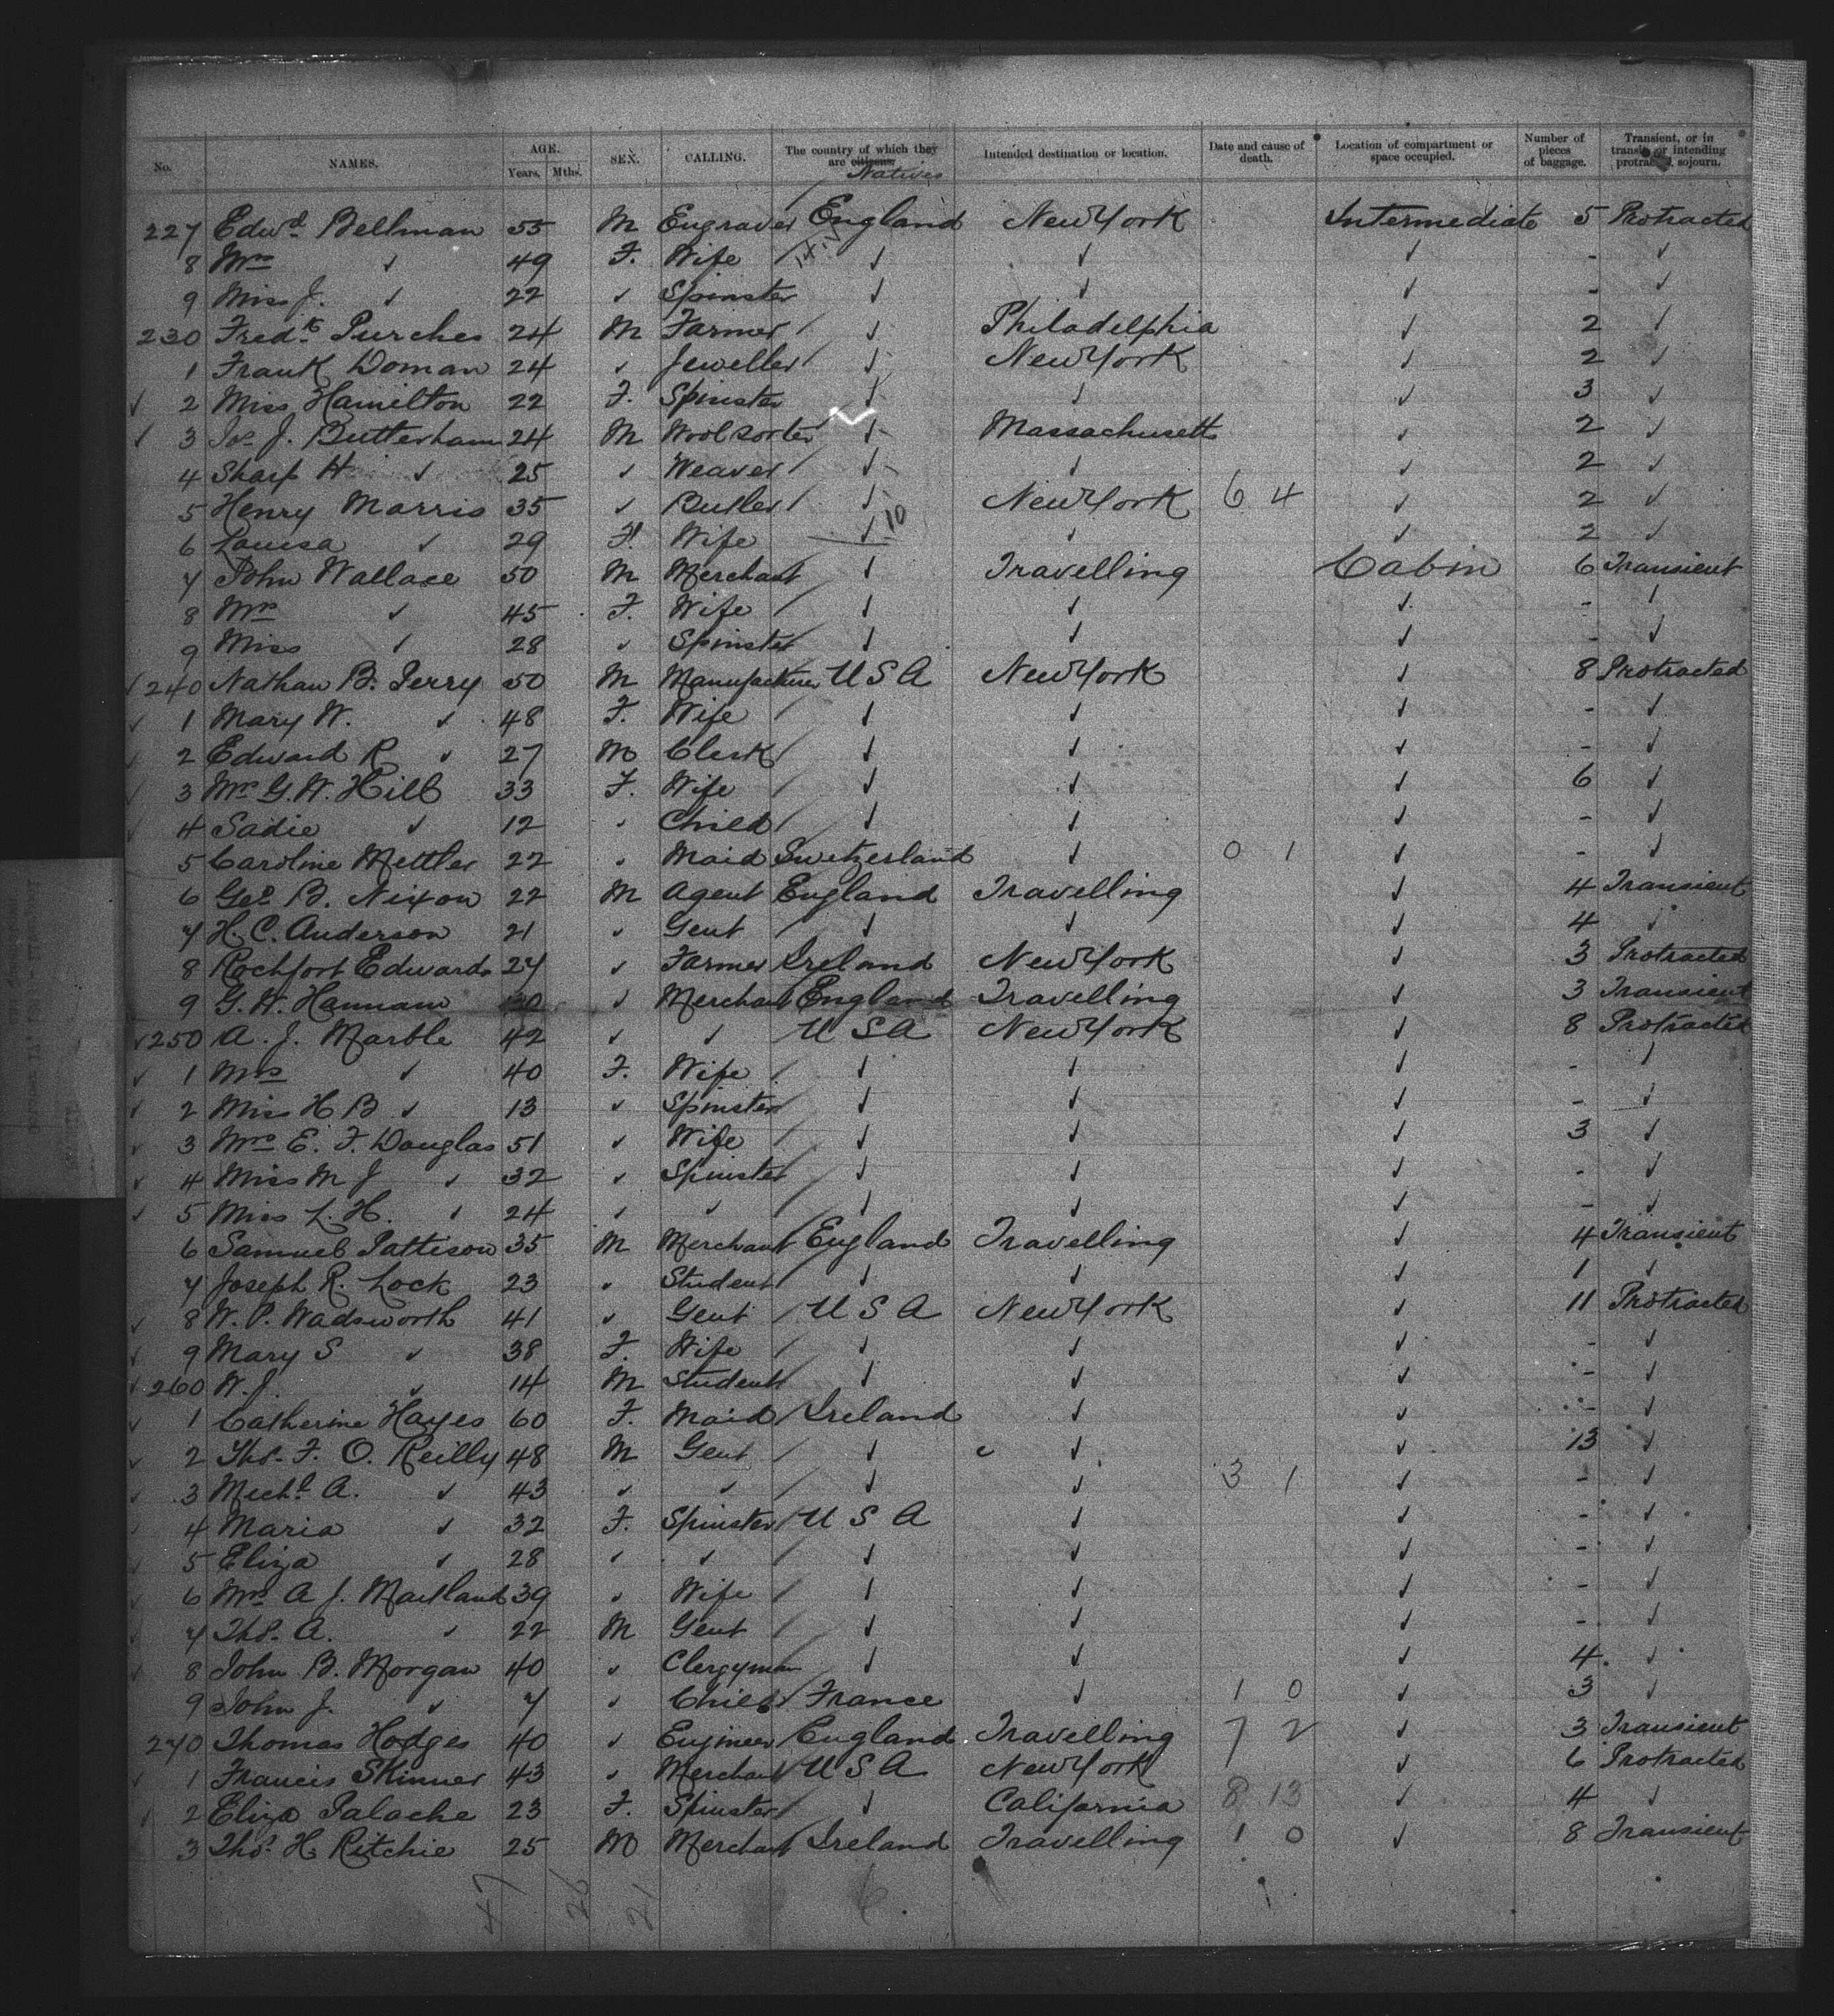 No. NAMES. AGE. Years. Mths. SEX. CALLING. The country of which they are citizens Natives Intended destination or location. Date and cause of death. Location of compartment or space occupied. Number of pieces of baggage. Transient, or in transit, or intending protracted sojourn.
227 Edwd Bellman 55 M Engraver England New York Intermediate 5 Protracted
8 Mrs ✓ 49 F. Wife / ✓ ✓ ✓ - ✓
9 Miss J. ✓ 22 ✓ Spinster ✓ ✓ ✓ - ✓
230 Fredk Purches 24 M Farmer / ✓ Philadelphia ✓ 2 ✓
1 Frank Doman 24 ✓ Jeweller / ✓ New York ✓ 2 ✓
✓ 2 Miss Hamilton 22 F. Spinster ✓ ✓ ✓ 3 ✓
✓ 3 Jos J. Butterham 24 M Woolsorter ✓ Massachusetts ✓ 2 ✓
4 Sharp H ✓ 25 ✓ Weaver / ✓ ✓ ✓ 2 ✓
5 Henry Morris 35 ✓ Butler / ✓ New York 6 4 ✓ 2 ✓
6 Louisa ✓ 29 F. Wife ✓ 10 ✓ ✓ 2 ✓
7 John Wallace 50 M Merchant ✓ Travelling Cabin 6 Transient
8 Mrs ✓ 45 F. Wife / ✓ ✓ ✓ - ✓
9 Miss ✓ 28 ✓ Spinster ✓ ✓ ✓ - ✓
✓ 240 Nathan B. Perry 50 M Manufacturer U S A New York ✓ 8 Protracted
✓ 1 Mary W. ✓ 48 F. Wife / ✓ ✓ ✓ - ✓
✓ 2 Edward R ✓ 27 M Clerk / ✓ ✓ ✓ - ✓
✓ 3 Mrs G. W. Hill 33 F. Wife / ✓ ✓ ✓ 6 ✓
✓ 4 Sadie ✓ 12 ✓ Child / ✓ ✓ ✓ - ✓
5 Caroline Mettler 22 ✓ Maid Switzerland ✓ 0 1 ✓ - ✓
6 Geo B. Nixon 22 M Agent England Travelling ✓ 4 Transient
7 H. C. Anderson 21 ✓ Gent / ✓ ✓ ✓ 4 ✓
8 Rochfort Edwards 27 ✓ Farmer Ireland New York ✓ 3 Protracted
9 G. H. Hannam 30 ✓ Merchant England Travelling ✓ 3 Transient
✓ 250 A. J. Marble 42 ✓ ✓ U S A New York ✓ 8 Protracted
✓ 1 Mrs ✓ 40 F. Wife / ✓ ✓ ✓ - ✓
✓ 2 Miss H B ✓ 13 ✓ Spinster ✓ ✓ ✓ - ✓
✓ 3 Mrs E. F. Douglas 51 ✓ Wife / ✓ ✓ ✓ 3 ✓
✓ 4 Miss M J ✓ 32 ✓ Spinster ✓ ✓ ✓ - ✓
✓ 5 Miss L. H. ✓ 24 ✓ ✓ / ✓ ✓ ✓ - ✓
6 Samuel Pattison 35 M Merchant England Travelling ✓ 4 Transient
7 Joseph R. Lock 23 ✓ Student / ✓ ✓ ✓ 1 ✓
✓ 8 W. P. Wadsworth 41 ✓ Gent / U S A New York ✓ 11 Protracted
✓ 9 Mary S ✓ 38 F. Wife / ✓ ✓ ✓ - ✓
✓ 260 W. J. ✓ 14 M Student ✓ ✓ ✓ - ✓
✓ 1 Catherine Hayes 60 F. Maid / Ireland ✓ ✓ - ✓
✓ 2 Thos. F. O. Reilly 48 M Gent / ✓ ✓ ✓ 13 ✓
✓ 3 Michl A. ✓ 43 ✓ ✓ ✓ ✓ 3 1 ✓ - ✓
✓ 4 Maria ✓ 32 F. Spinster / U S A ✓ ✓ - ✓
✓ 5 Eliza ✓ 28 ✓ ✓ / ✓ ✓ ✓ - ✓
✓ 6 Mrs A J. Maitland 39 ✓ Wife / ✓ ✓ ✓ - ✓
✓ 7 Thos. A. ✓ 22 M Gent / ✓ ✓ ✓ - ✓
✓ 8 John B. Morgan 40 ✓ Clergyman ✓ ✓ ✓ 4 ✓
9 John J. ✓ 7 ✓ Child / France ✓ 1 0 ✓ 3 ✓
270 Thomas Hodges 40 ✓ Engineer / England Travelling 7 2 ✓ 3 Transient
✓ 1 Francis Skinner 43 ✓ Merchant U S A New York ✓ 6 Protracted
✓ 2 Eliza Palache 23 F. Spinster / ✓ California 8 13 ✓ 4 ✓
3 Thos. H. Ritchie 25 M Merchant Ireland Travelling 1 0 ✓ 8 Transient
47 26 21 6